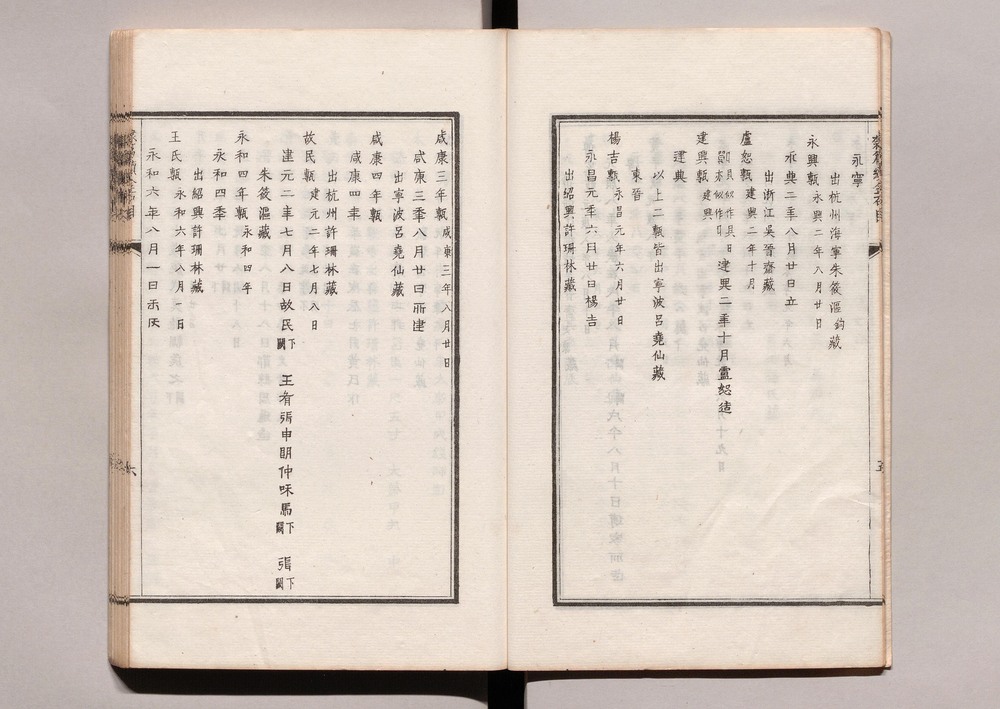 永寧
出杭州海寧朱筱漚鈞藏
永興甎 永興二年八月廿日
永興二年八月廿日立
出浙江吳晉齋藏
盧恕甎 建興二年十月
建興二年十月盧恕造
建興甎 建興
建興
以上二甎皆出寧波呂堯仙藏
東晉
楊吉甎 永昌元年六月廿日
永昌元年六月廿日楊吉
出紹興許珊林藏
咸康三年甎 咸康三年八月廿日
咸康三年八月廿日所建
出寧波呂堯仙藏
咸康四年甎
咸康四年
出杭州許珊林藏
故民甎 建元二年七月八日
建元二年七月八日故民 下闕 王脊張申明仲咊馬 下闕 張 下闕
朱筱漚藏
永和四年甎 永和四年
永和四年
出紹興許珊林藏
王氏甎 永和六年八月一日
永和六年八月一日示氒
六